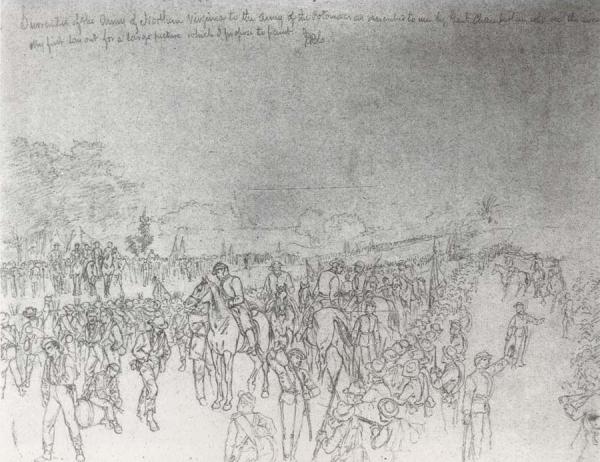 Surrender of the Army of Northern Virginia to the Army of the Potomac as narrated to me by Genl. Chamberlain who
My first lay out for a large picture which I propose to paint.